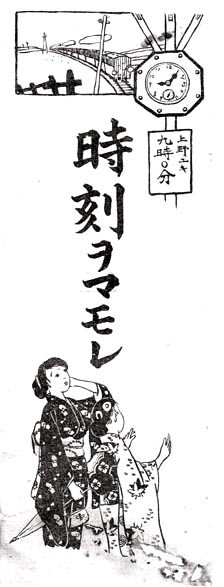 上野ユキ
九時〇分
時刻ヲマモレ